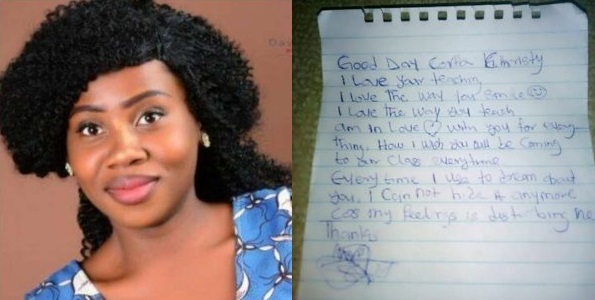 Dav
Good Day Corper Christy
I Love Your teaching
I Love The Way you Smile
I Love The Way you teach
am in Love with you for every-
thing. How I wish you will be Coming
to our Class everytime
Everytime I use to dream about
you, I Can not hide it anymore
Cos my feelings is disturbing me
Thanks